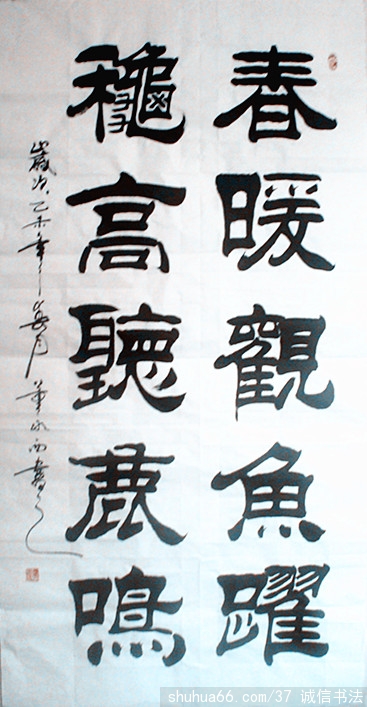 春暖觀魚躍
龝高聽鹿鳴
歲次乙未年月董永西書之
shuhua66.com/37 诚信书法